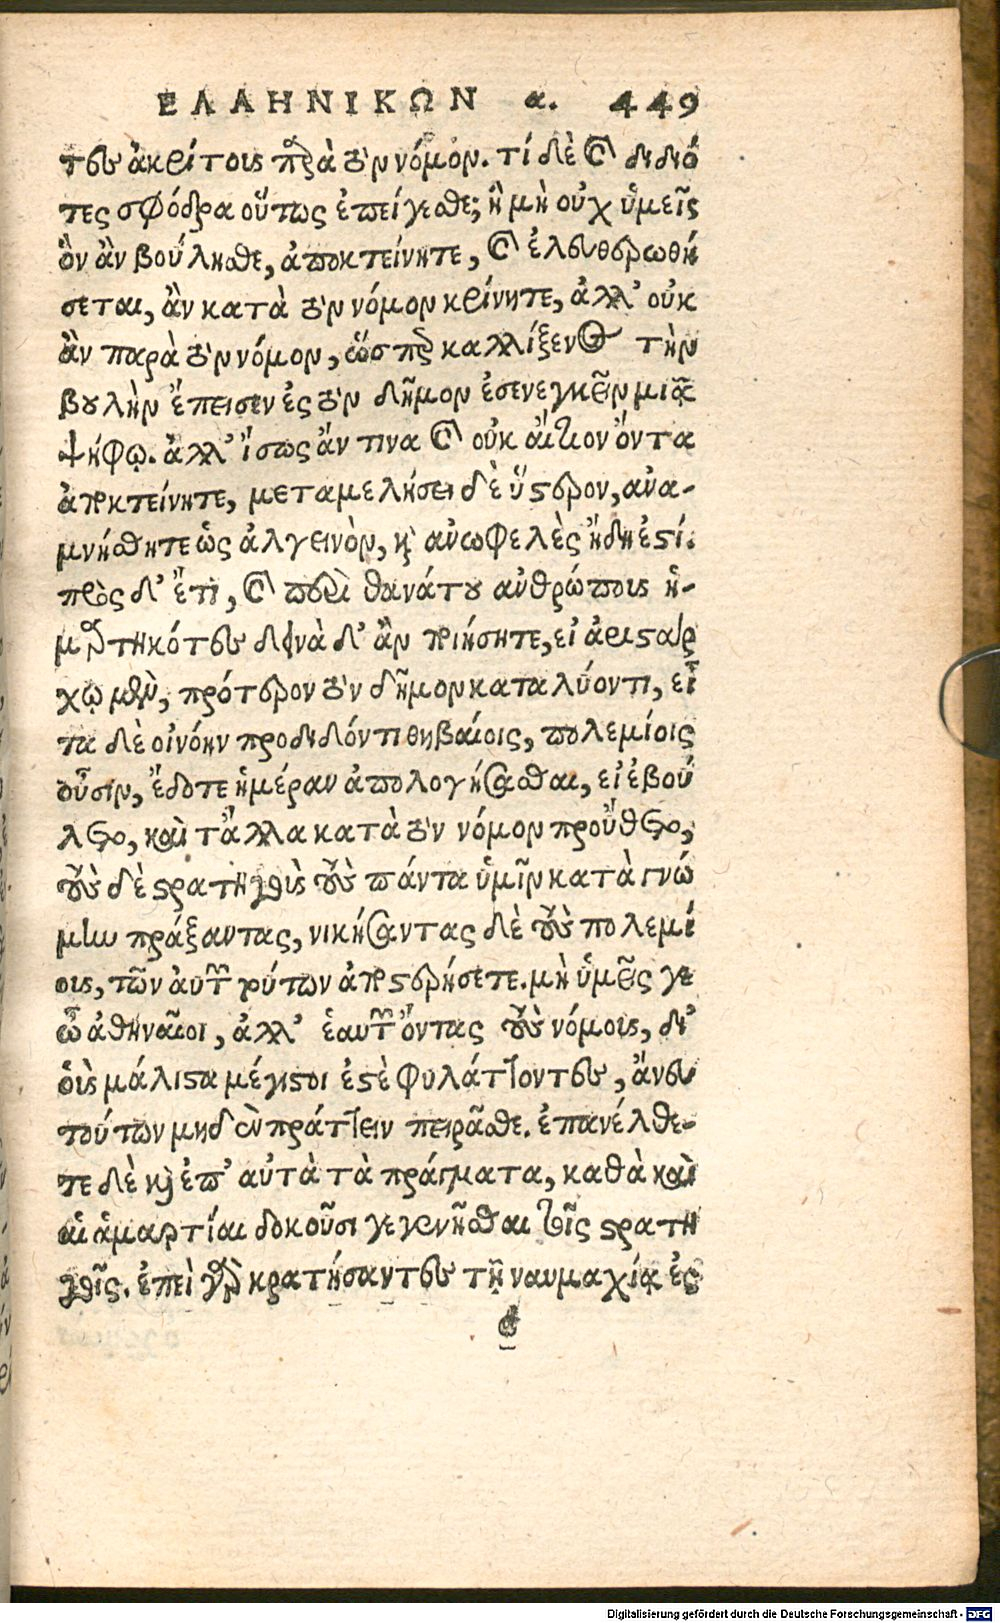 ΕΛΛΗΝΙΚΩΝ α. 449
τες ἀκρίτους παρὰ τὸν νόμον. τί δὲ καὶ δεδιό
τες σφόδρα οὕτως ἐπείγεσθε; ἢ μὴ οὐχ ὑμεῖς
ὃν ἂν βούλησθε, ἀποκτείνητε, καὶ ἐλευθερωθή
σεται, ἂν κατὰ τὸν νόμον κρίνητε, ἀλλ' οὐκ
ἂν παρὰ τὸν νόμον, ὥσπερ καλλίξενος τὴν
βουλὴν ἔπεισεν ἐς τὸν δῆμον ἐσενεγκεῖν μιᾷ
ψήφῳ. ἀλλ' ἴσως ἄν τινα καὶ οὐκ αἴτιον ὄντα
ἀποκτείνητε, μεταμελήσει δὲ ὕστερον, ἀνα-
μνήσθητε ὡς ἀλγεινὸν, καὶ ἀνωφελὲς ἤδη ἐστί.
πρὸς δ' ἔτι, καὶ περὶ θανάτου ἀνθρώποις ἡ-
μαρτηκότες δεινὰ δ' ἂν ποιήσητε, εἰ ἀρισταρ
χῳ μὲν, πρότερον τὸν δῆμον καταλύοντι, εἶ
τα δὲ οἰνόην προδιδόντι θηβαίοις, πολεμίοις
οὖσιν, ἔδοτε ἡμέραν ἀπολογήσασθαι, ᾗ ἐβού
λετο, καὶ τἄλλα κατὰ τὸν νόμον προὔθετο,
τοὺς δὲ στρατηγοὺς τοὺς πάντα ὑμῖν κατὰ γνώ
μην πράξαντας, νικήσαντας δὲ τοὺς πολεμί
ους, τῶν αὐτῶν τούτων ἀποστερήσετε. μὴ ὑμεῖς γε
ὦ ἀθηναῖοι, ἀλλ' ἑαυτῶν ὄντας τοὺς νόμους, δι'
οὓς μάλιστα μέγιστοι ἐστὲ φυλάττοντες, ἄνευ
τούτων μηδὲν πράττειν πειρᾶσθε. ἐπανέλθε-
τε δὲ καὶ ἐπ' αὐτὰ τὰ πράγματα, καθὰ καὶ
αἱ ἁμαρτίαι δοκοῦσι γεγενῆσθαι τοῖς στρατη
γοῖς. ἐπεὶ γὰρ κρατήσαντες τῇ ναυμαχίᾳ ἐς
Digitalisierung gefördert durch die Deutsche Forschungsgemeinschaft - DFG